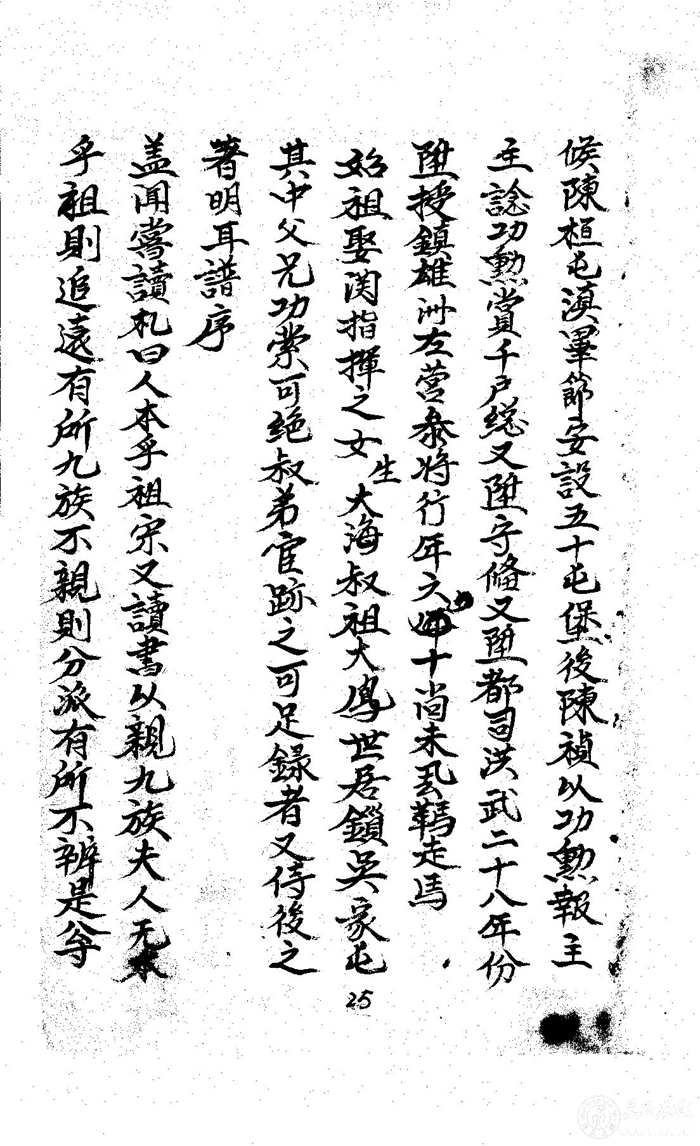 候陳桓屯滇畢節安設五十屯堡後陳禎以功勲報主
主諗功勲賞千户総又陞守備又陞都司洪武二十八年份
陞授鎮雄洲左营参将行年六十尚未乱鞲走馬
始祖娶関指揮之女生大海叔祖大鳳世居鎖吳家屯
其中父兄功業可绝叔弟宦跡之可足録者又侍後之
著明耳譜序
盖闻嘗讀札曰人本乎祖宗又讀書以親九族夫人无本
乎祖則追遠有所九族不親則分派有所不辨是分
25